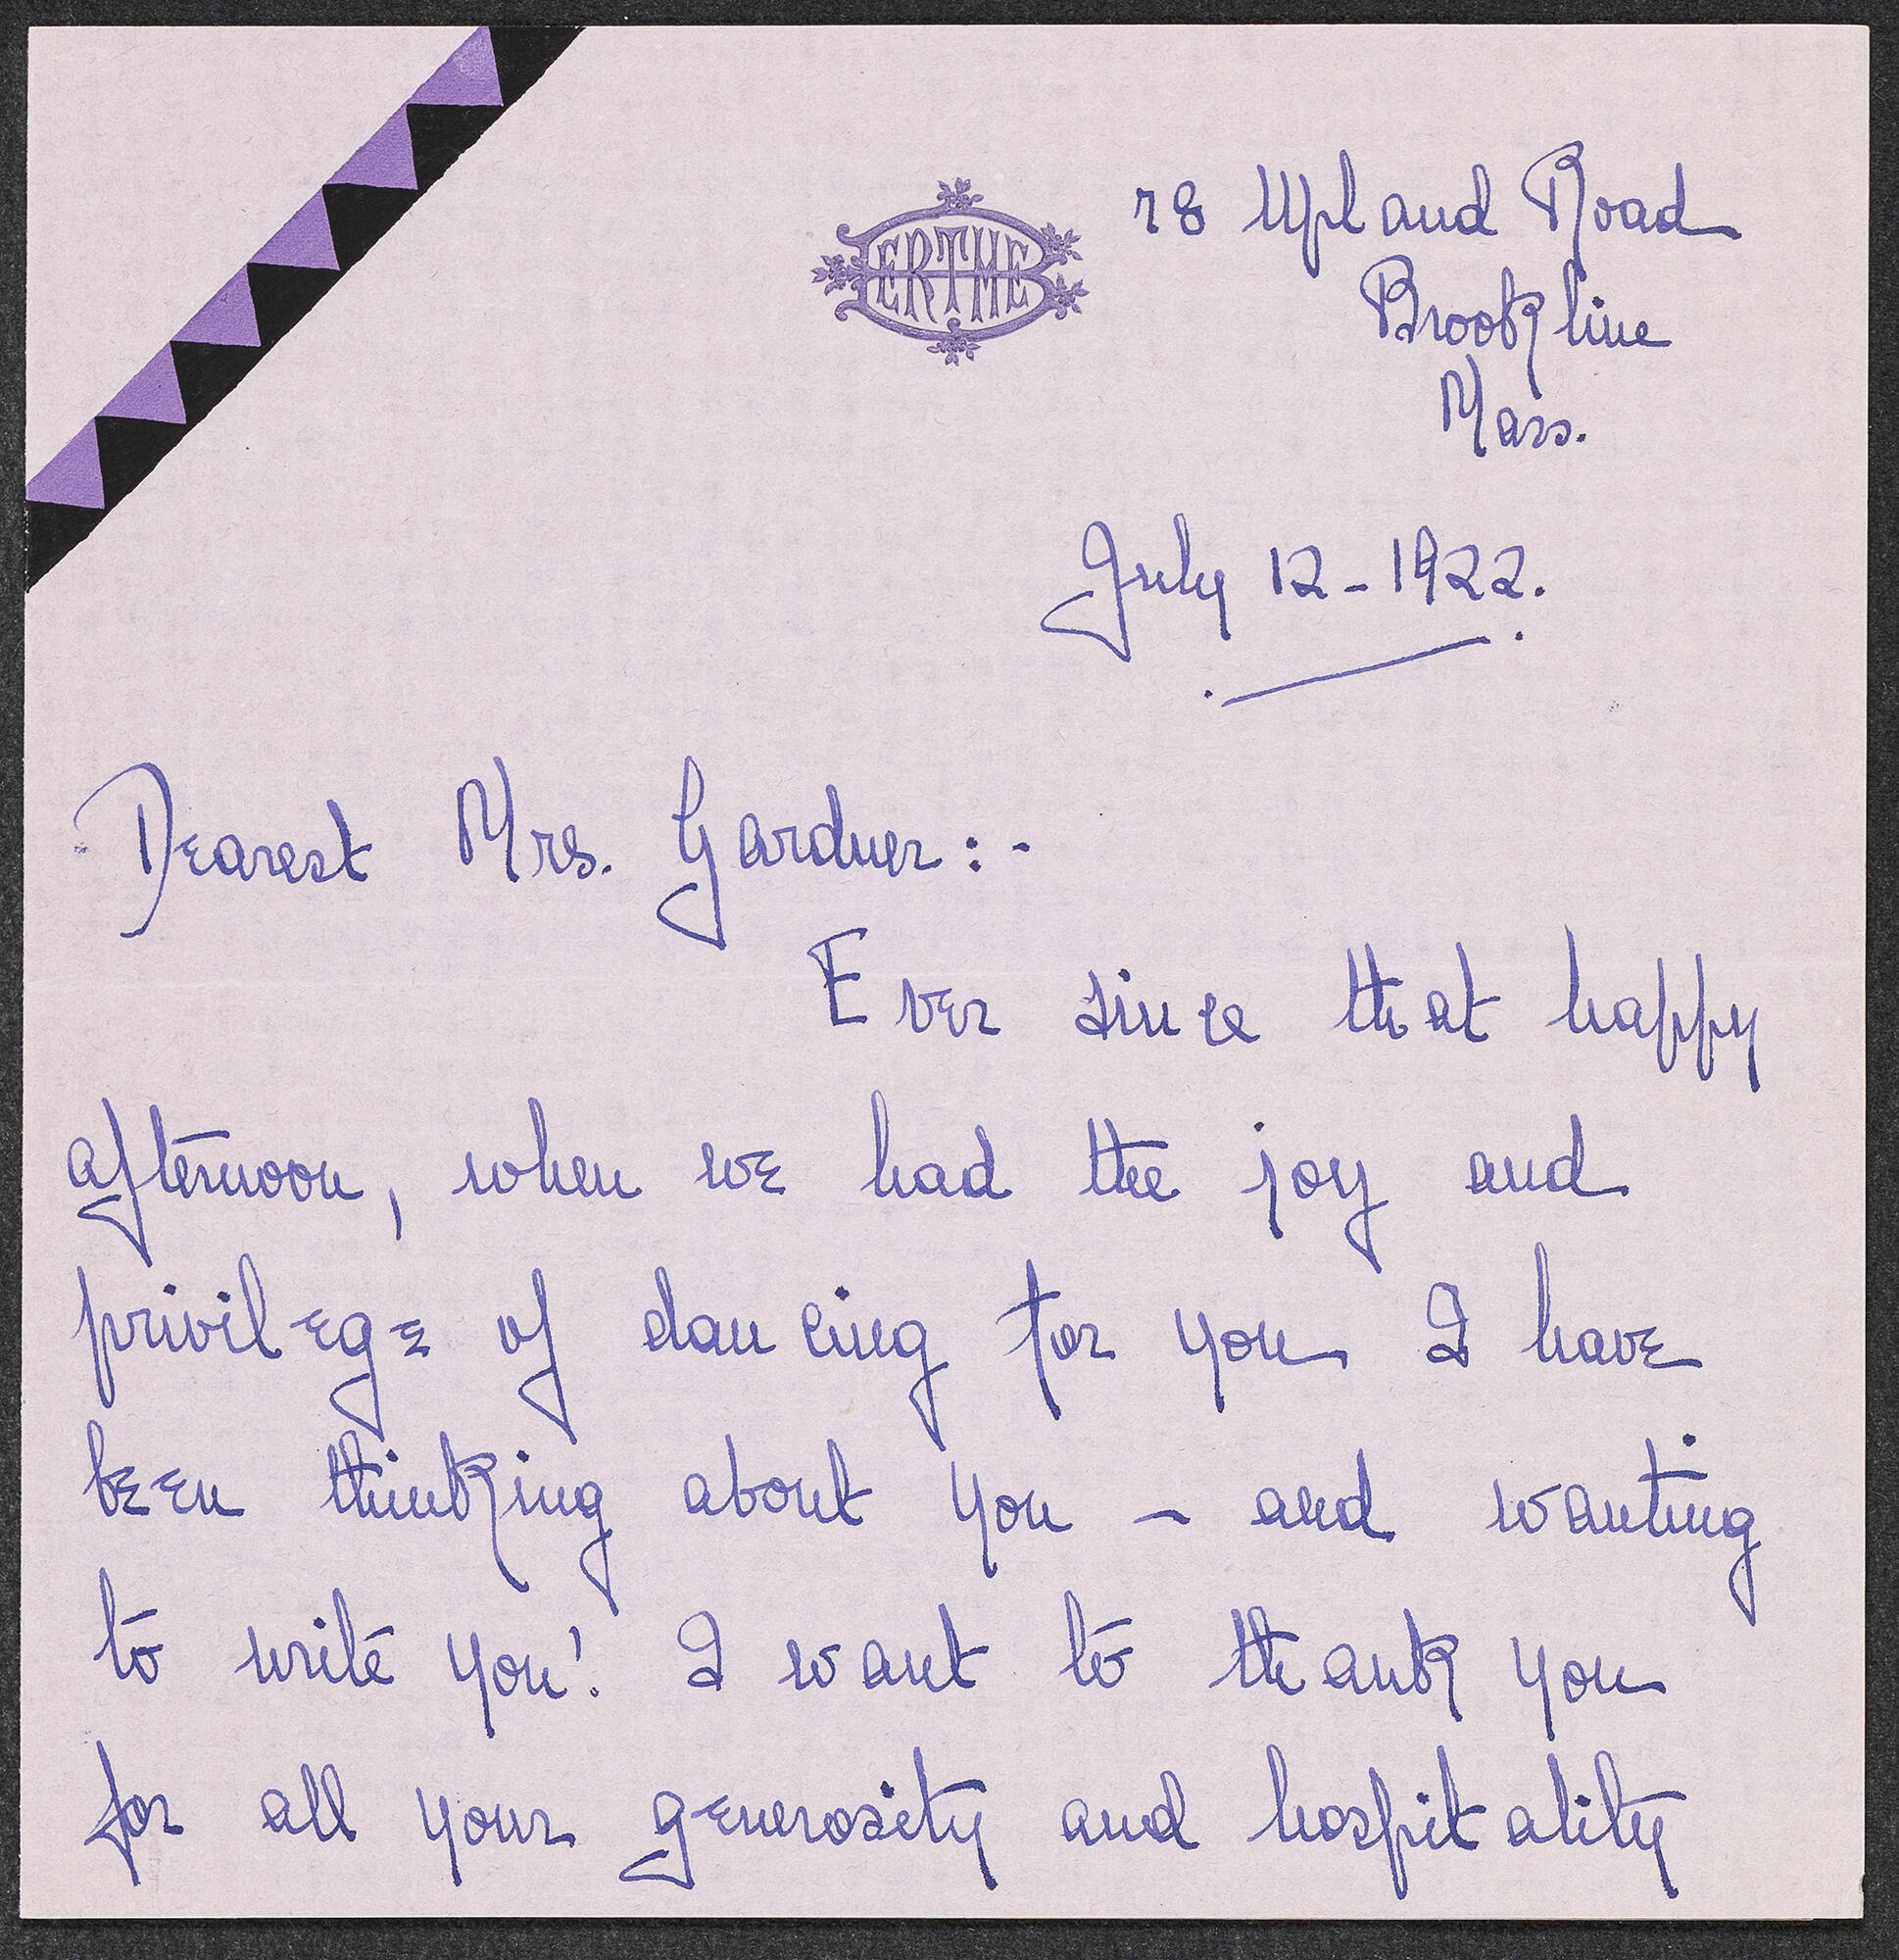 BERTHE
78 Upland Road
Brookline
Mass.
July 12 - 1922.
Dearest Mrs. Gardner:-
Ever since that happy
afternoon, when we had the joy and
privilege of dancing for you I have
been thinking about you - and wanting
to write you! I want to thank you
for all your generosity and hospitality